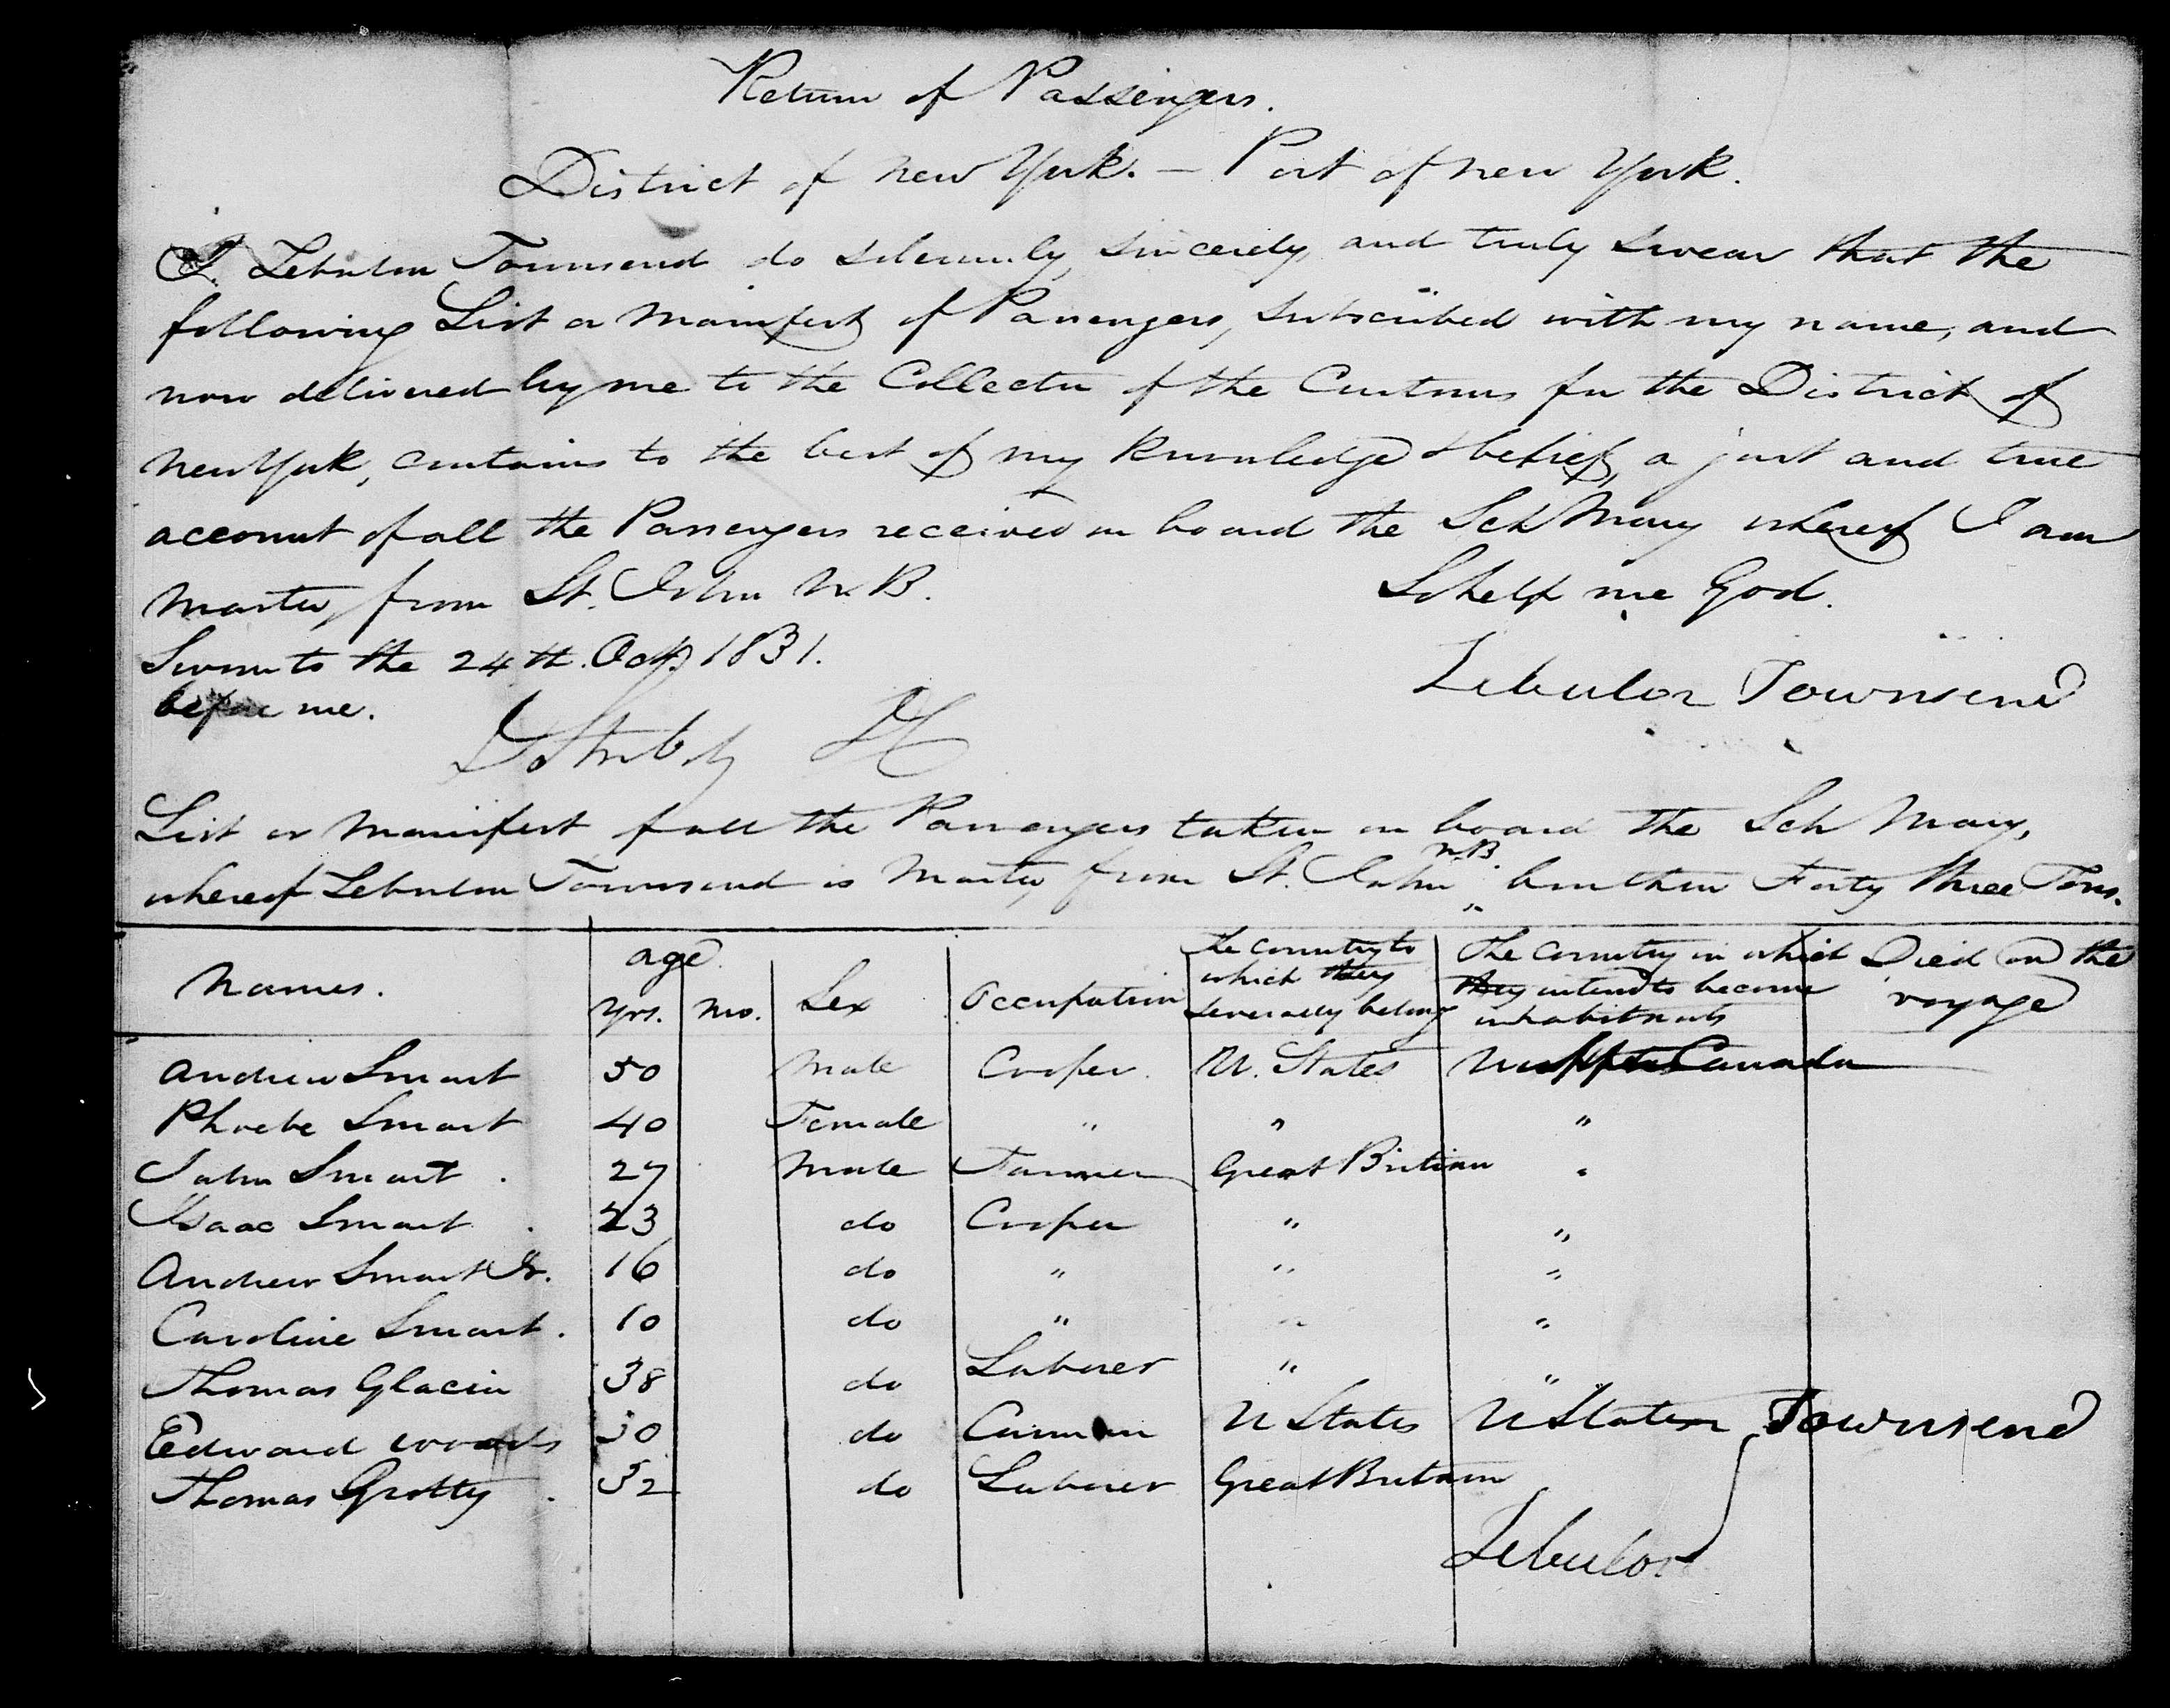 Return of Passengers.
District of New York. — Port of New York.
I. Zebulon Townsend do solemnly, sincerely and truly swear that the
following List or Manifest of Passengers, subscribed with my name, and
now delivered by me to the Collector of the Customs for the District of
New York, contains to the best of my knowledge & belief, a just and true
account of all the Passengers received on board the Sch Mary whereof I am
Master, from St. John N.B. So help me God.
Sworn to the 24th. Oct. 1831.
before me.
Zebulon Townsend
List or Manifest of all the Passengers taken on board the Sch Mary,
whereof Zebulon Townsend is Master, from St. John N.B. burthen Forty three Tons.
Names. age. Yrs. Mo. Sex Occupation The Country to which they severally belong The Country in which they intend to become inhabitants Died on the voyage
Andrew Smart 50 Male Cooper. U. States Upper Canada
Phoebe Smart 40 Female " " "
John Smart. 27 Male Farmer Great Britian "
Isaac Smart. 23 do Cooper " "
Andrew Smart Jr. 16 do " " "
Caroline Smart. 10 do " " "
Thomas Glacin 38 do Laborer " "
Edward Woods 30 do U States U States Townsend
Thomas Grotty. 32 do Laborer Great Britain
Zebulon